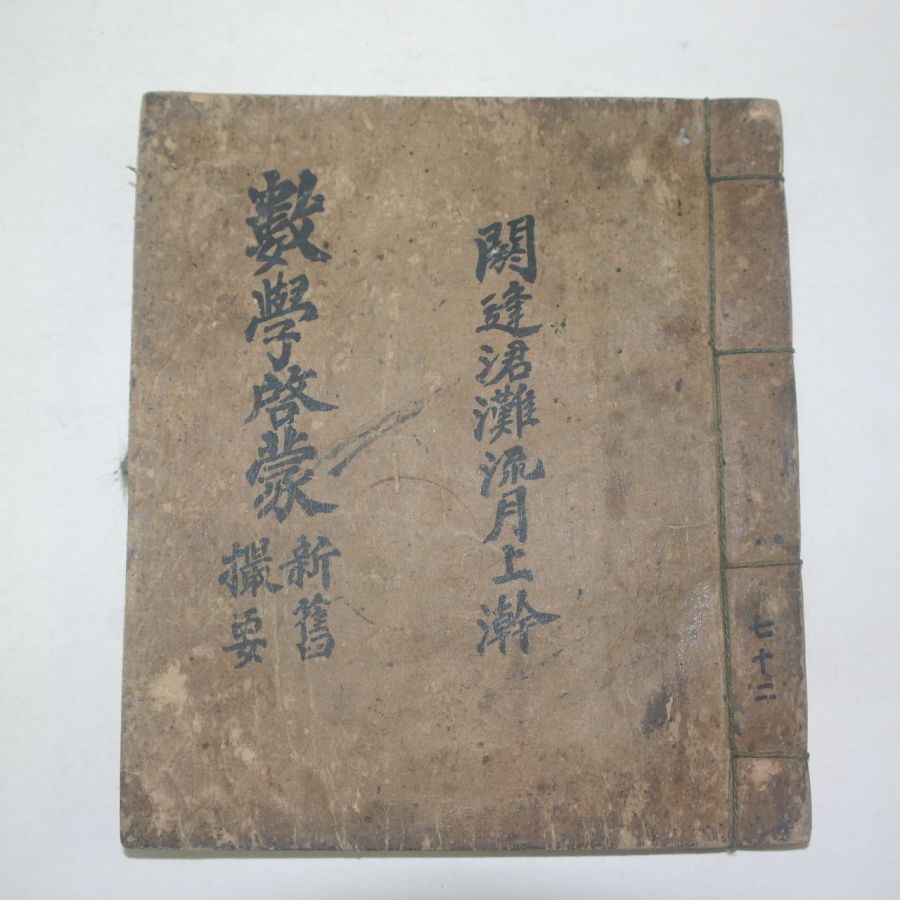 七十二
閼逢涒灘流月上澣
數學啓蒙
新舊
撮要